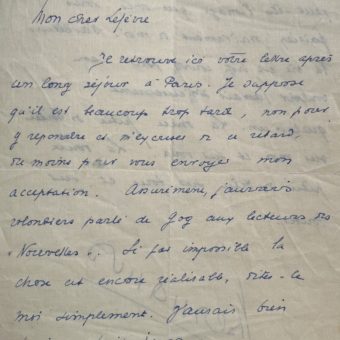 Mon cher Lefèvre
Je retrouve ici votre lettre après
un long séjour à Paris. Je suppose
qu'il est beaucoup trop tard, non pour
y répondre et m'excuser de ce retard
du moins pour vous envoyer mon
acceptation. Assurément, j'aurais
volontiers parlé de Gog aux lecteurs des
« Nouvelles ». Si par impossible la
chose est encore réalisable, dites-le
moi simplement. J'aurais bien